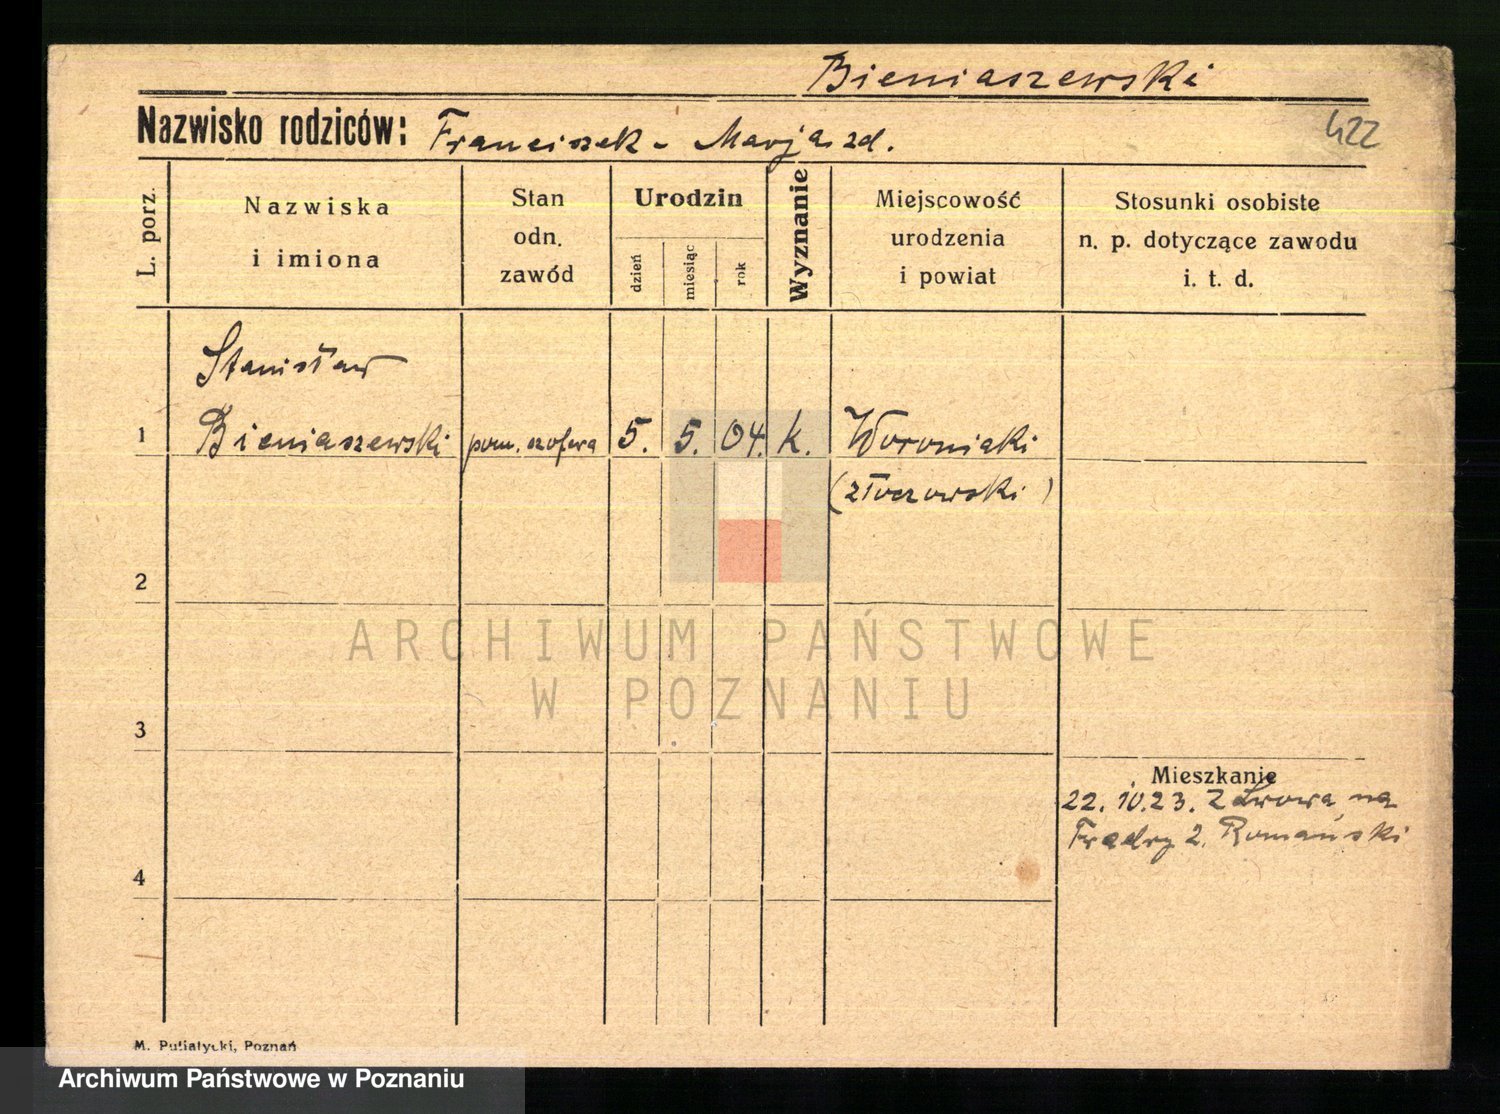 Bieniaszewski
Nazwisko rodziców: Franciszek - Marja zd.
422
L. porz.
Nazwiska
i imiona
Stan
odn.
zawód
Urodzin
dzień
miesiąc
rok
Wyznanie
Miejscowość
urodzenia
i powiat
Stosunki osobiste
n. p. dotyczące zawodu
i. t. d.
Stanisław
1 Bieniaszewski pom. szofera 5. 5. 04. k. Woroniaki
(złoczowski)
2
ARCHIWUM PAŃSTWOWE
W POZNANIU
3
Mieszkanie
22. 10. 23. Z Lwowa na
2. Romański
4
M. Putiatycki, Poznań
Archiwum Państwowe w Poznaniu